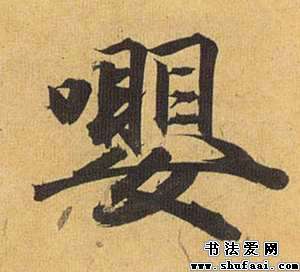 嚶
书法爱网
www.shufaai.com